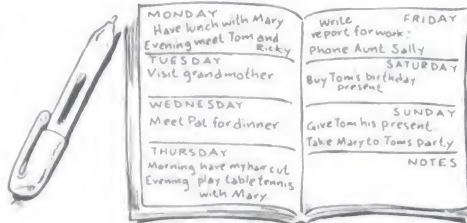 MONDAY
Have lunch with Mary
Evening meet Tom and
Ricky
TUESDAY
Visit grandmother
WEDNESDAY
Meet Pat for dinner
THURSDAY
Morning have my hair cut
Evening play table tennis
with Mary
FRIDAY
Write
report for work.
Phone Aunt Sally
SATURDAY
Buy Tom's birthday
present
SUNDAY
Give Tom his present
Take Mary to Tom's party
NOTES